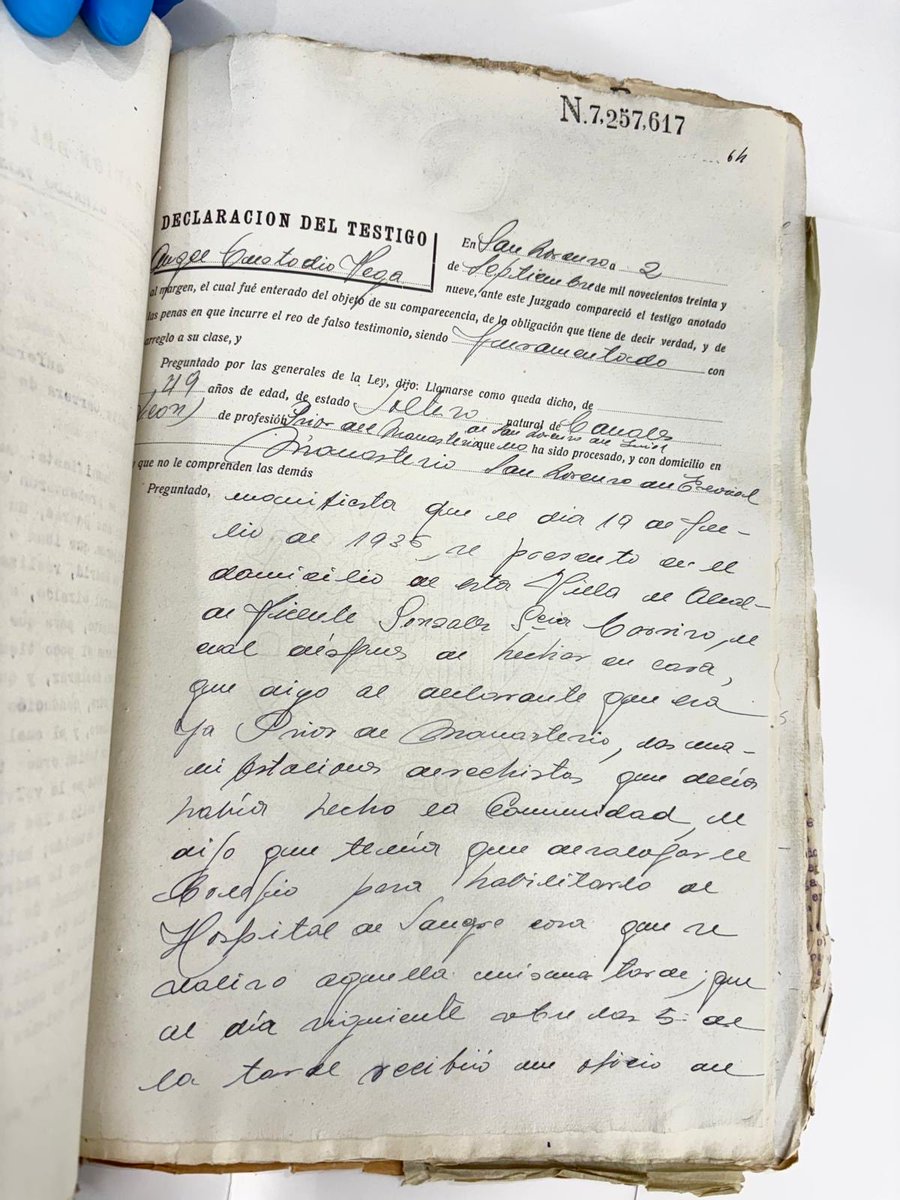 N.7,257,617
64
DECLARACION DEL TESTIGO
Angel Custodio Vega
En San Lorenzo a 2
de Septiembre de mil novecientos treinta y
nueve, ante este Juzgado compareció el testigo anotado
al margen, el cual fué enterado del objeto de su comparecencia, de la obligación que tiene de decir verdad, y de
las penas en que incurre el reo de falso testimonio, siendo Juramentado con
arreglo a su clase, y
Preguntado por las generales de la Ley, dijo: Llamarse como queda dicho, de
49 años de edad, de estado Soltero natural de Canales
(León) de profesión Prior del Monasterio de San Lorenzo del que no ha sido procesado, y con domicilio en
Monasterio San Lorenzo del Escorial
y que no le comprenden las demás
Preguntado, manifiesta que el dia 19 de Ju-
lio de 1936, se presento en el
domicilio de esta Villa el Alcal-
de Vicente Gonzalez Carrizo, el
cual después de hechar en cara,
que digo al declarante que era
ya Prior del Monasterio, las ma-
nifestaciones derechistas que decía
había hecho la Comunidad, le
dijo que tenía que desalojar el
Colegio para habilitarlo de
Hospital de Sangre cosa que se
realizo aquella misma tarde; que
al día siguiente sobre las 5 de
la tarde recibió un oficio del